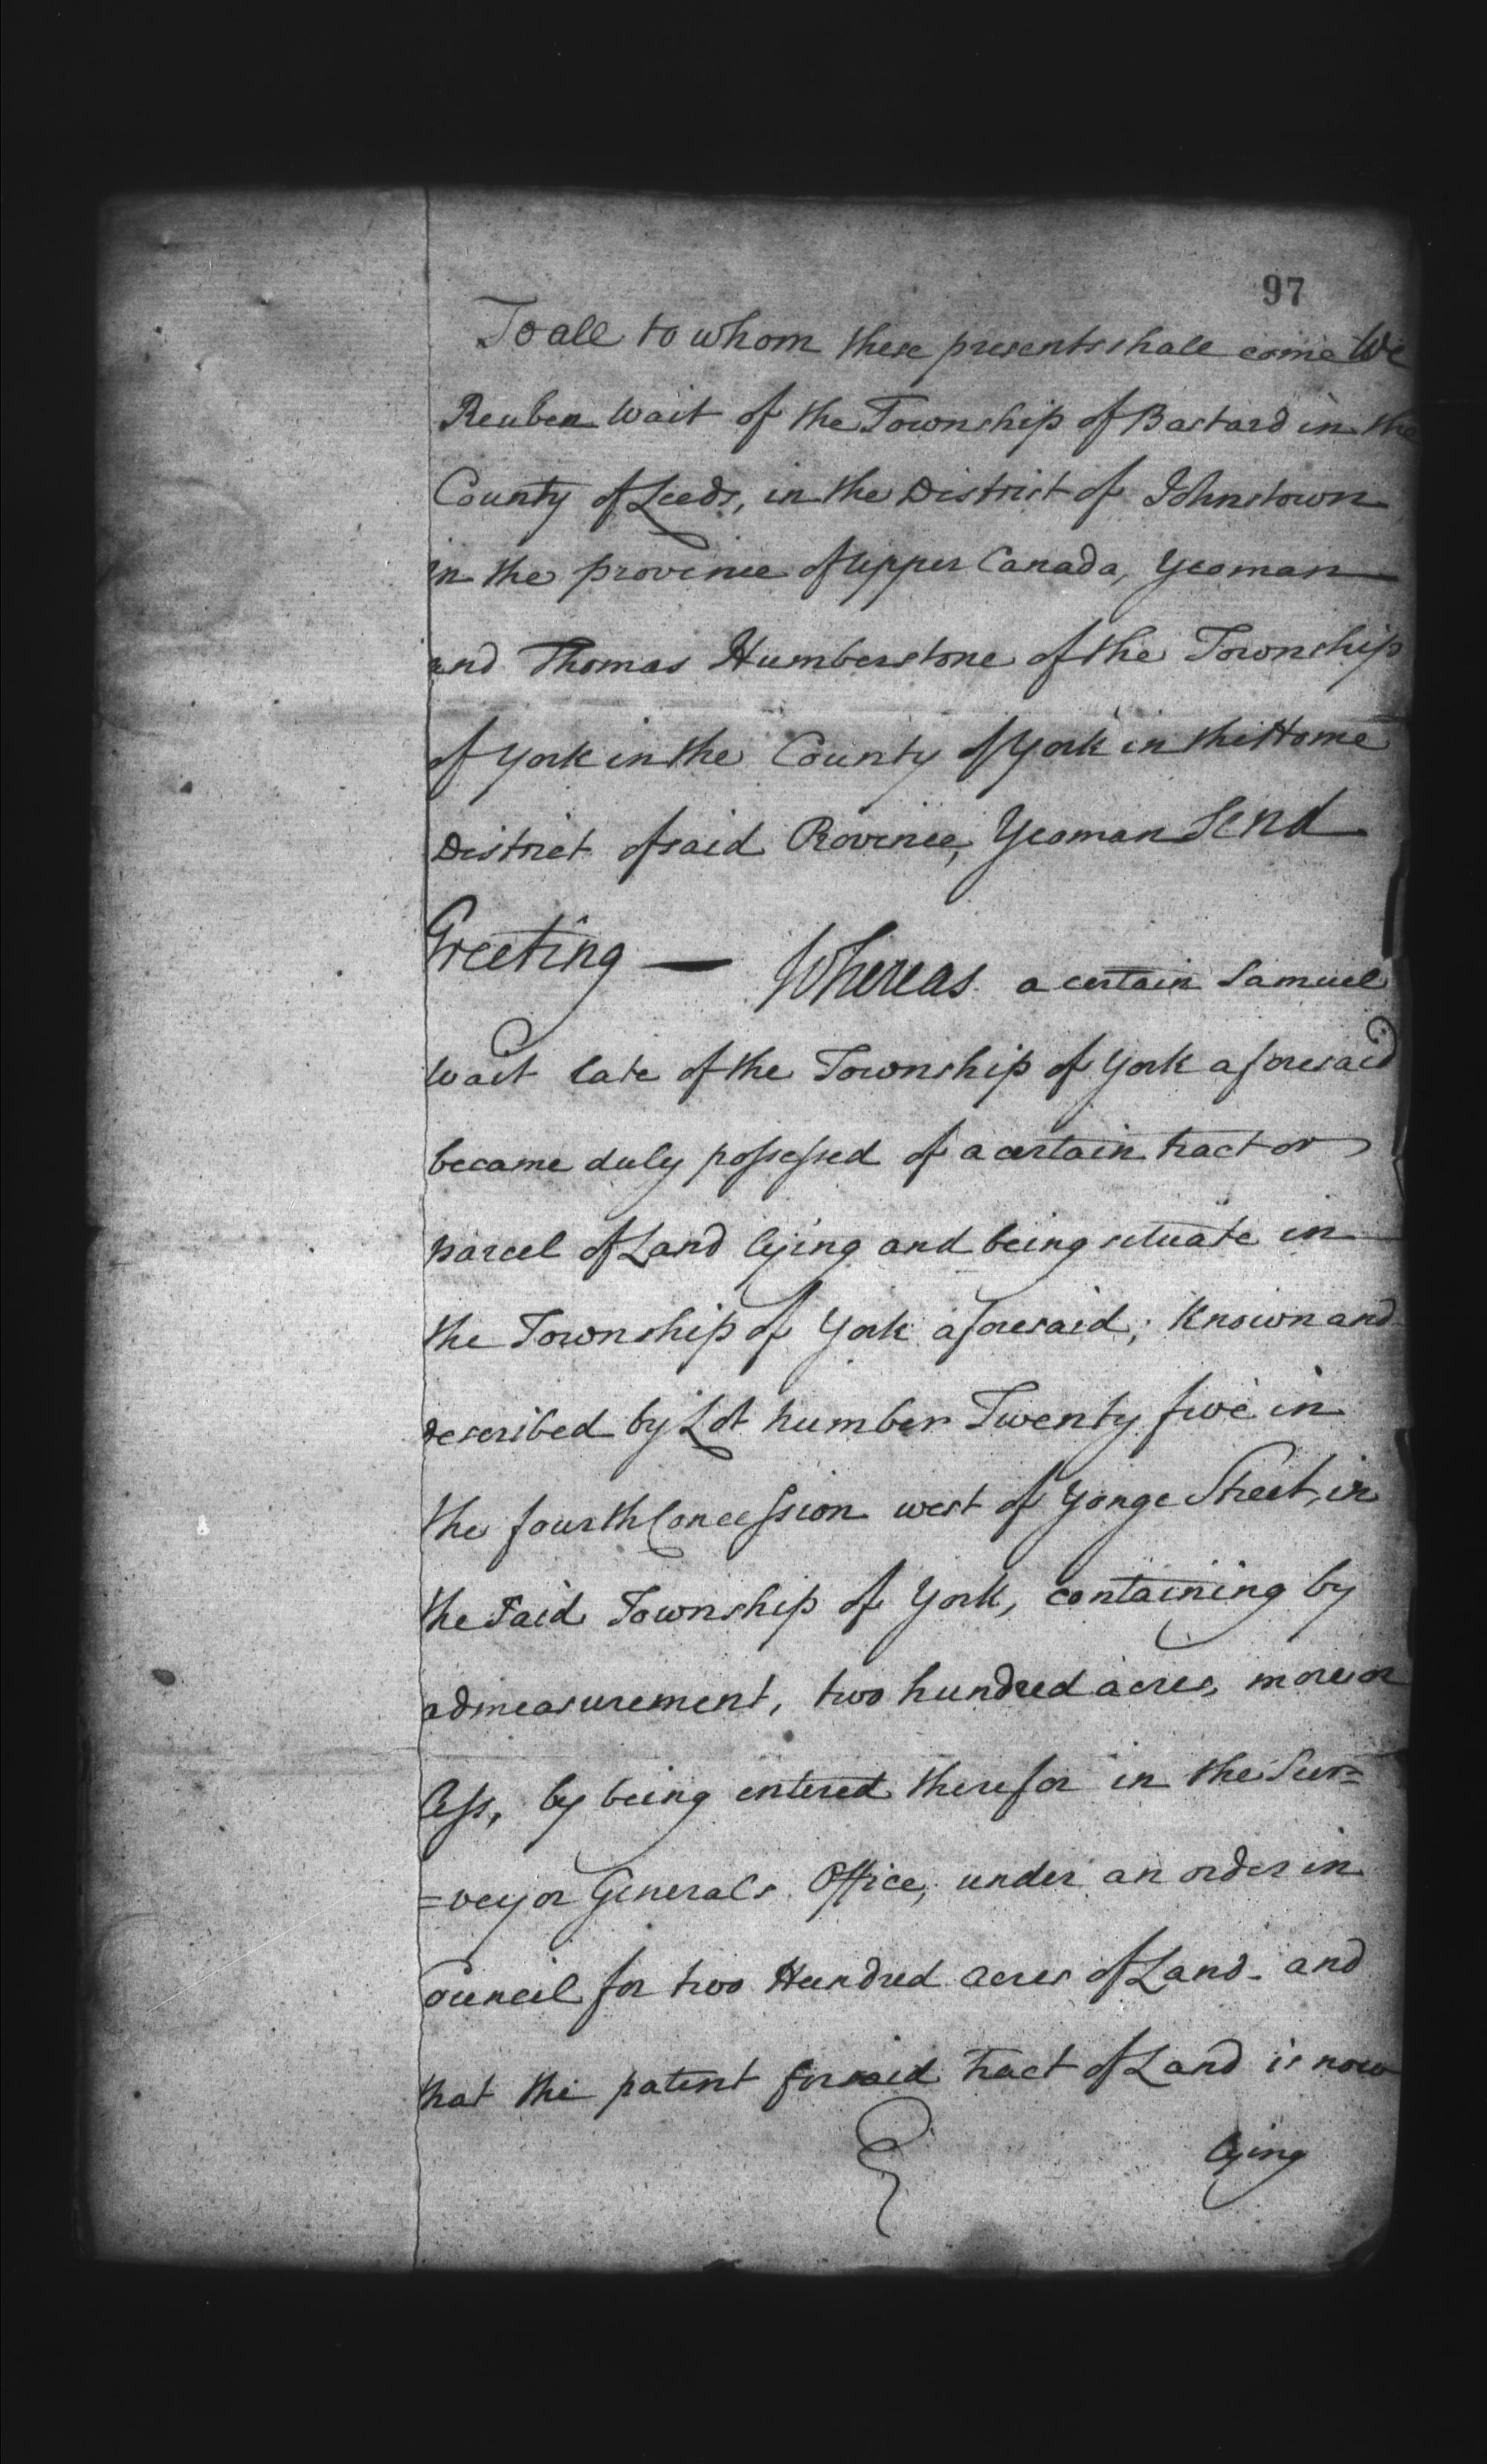 97
To all to whom these presents shall come We
Reuben Wait of the Township of Bastard in the
County of Leeds, in the District of Johnstown
in the province of upper Canada, Yeoman
and Thomas Humberstone of the Township
of York in the County of York in the Home
District of said Province, Yeoman Send
Greeting — Whereas a certain Samuel
Wait late of the Township of York aforesaid
became duly possessed of a certain tract or
parcel of Land lying and being situate in
the Township of York aforesaid; Known and
described by Lot number Twenty five in
the fourth Concession west of Yonge Street, in
the Said Township of York, containing by
admeasurement, two hundred acres, more or
less, by being entered therefor in the Sur=
=veyor Generals Office, under an order in
Council for two Hundred acres of Land - and
that the patent for said tract of Land is now
lying